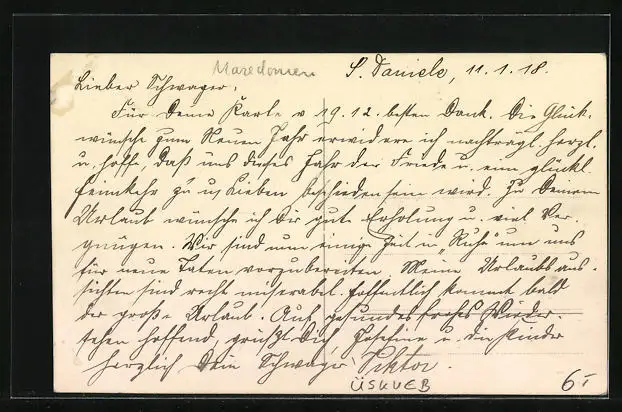 Mazedonien
S. Daniele, 11.1.18.
Lieber Schwager,
Für Deine Karte v. 19.12. besten Dank. Die Glück-
wünsche zum Neuen Jahr erwidere ich nachträgl. herzl.
u. hoffe, daß uns dieses Jahr den Friede u. eine glückl.
Heimkehr zu u. Lieben beschieden sein wird. Zu Deinem
Urlaub wünsche ich Dir gute Erholung u. viel Ver-
gnügen. Wir sind nun einige Zeit in "Ruhe" um uns
für neue Taten vorzubereiten. Meine Urlaubsaus-
sichten sind recht miserabel. Hoffentlich kommt bald
der große Urlaub. Auf gesundes frohes Wieder-
sehen hoffend, grüßt Dich, Josefine u. die Kinder
herzlich Dein Schwager Viktor.
ÜSKUEB
6.-